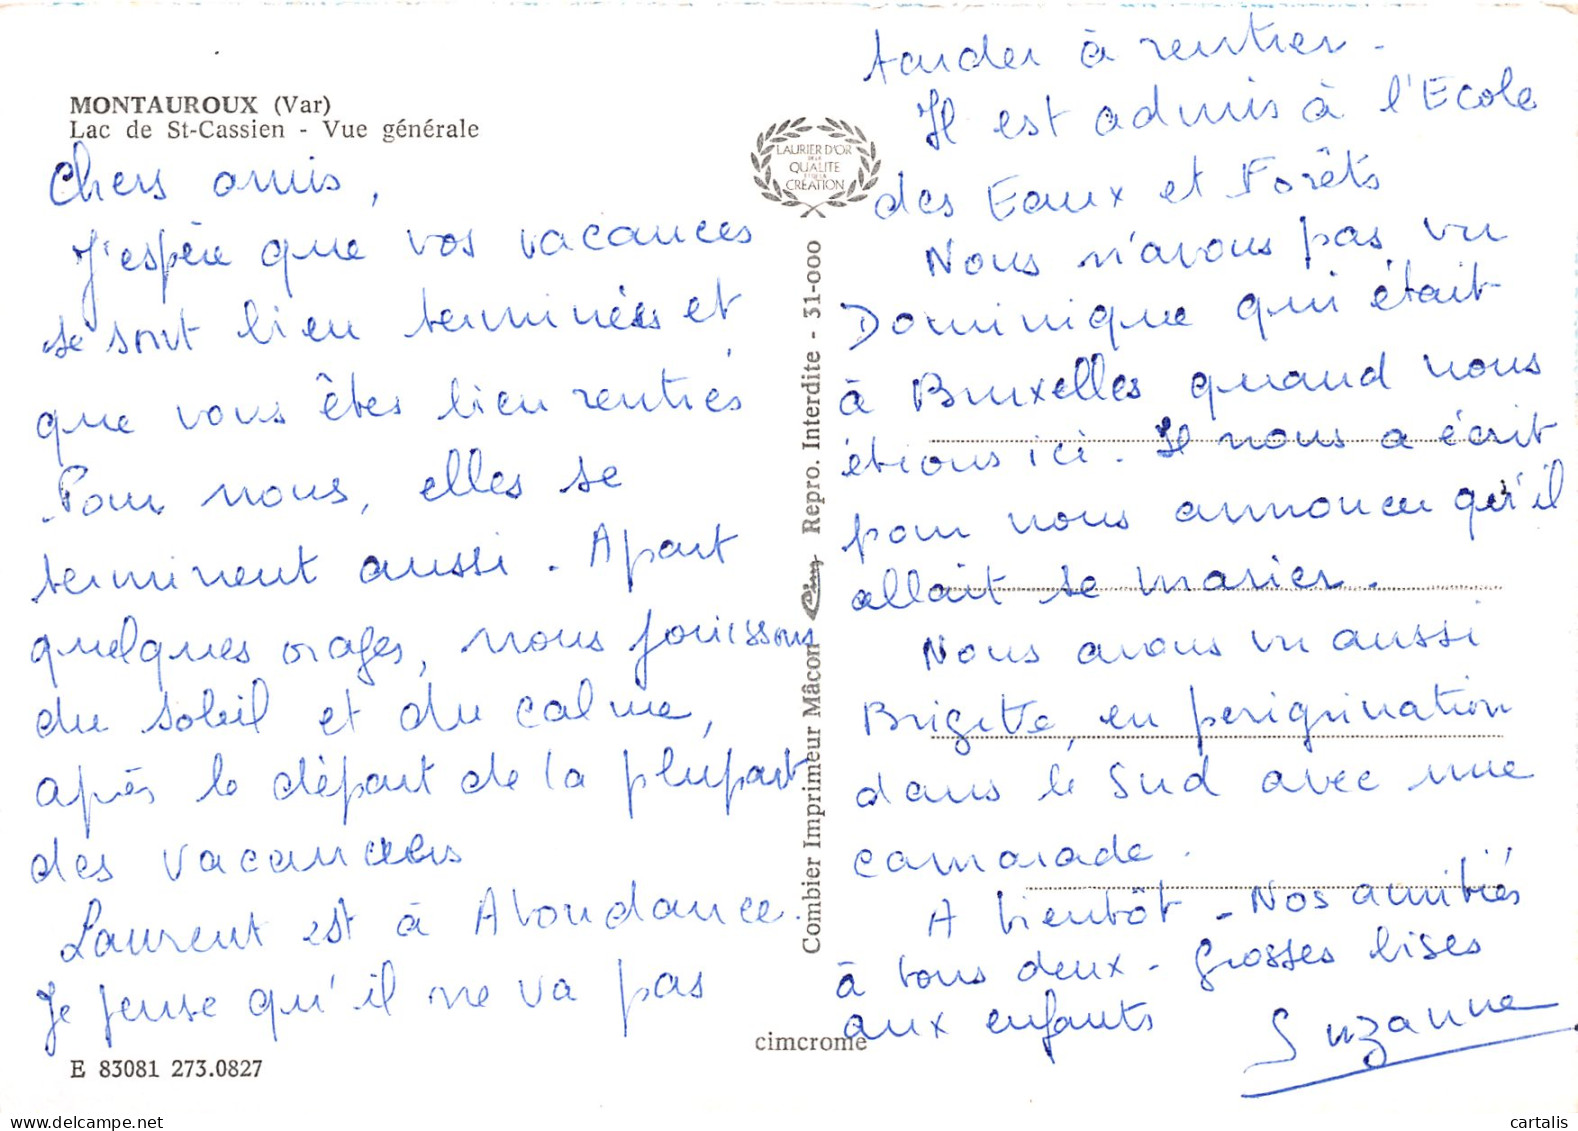 MONTAUROUX (Var)
Lac de St-Cassien - Vue générale
Chers amis,
J'espère que vos vacances
se sont bien terminées et
que vous êtes bien rentrés
Pour nous, elles se
terminent aussi. Apart
quelques orages, nous jouissons
du soleil et du calme,
après le départ de la plupart
des vacanciers
Laurent est à Abondance.
Je pense qu'il ne va pas
E 83081 273.0827
LAURIER D'OR
DE LA
QUALITE
ET DE LA
CRÉATION
Combier Imprimeur Mâcon Cim Repro. Interdite - 31-000
cimcrome
tarder à rentrer -
Il est admis à l'Ecole
des Eaux et Forêts
Nous n'avons pas vu
Dominique qui était
à Bruxelles quand nous
étions ici. Il nous a écrit
pour nous annoncer qu'il
allait se marier.
Nous avons vu aussi
Brigitte, en perigrination
dans le Sud avec une
camarade.
A bientôt - Nos amitiés
à tous deux - Grosses bises
aux enfants
Suzanne
cartalis